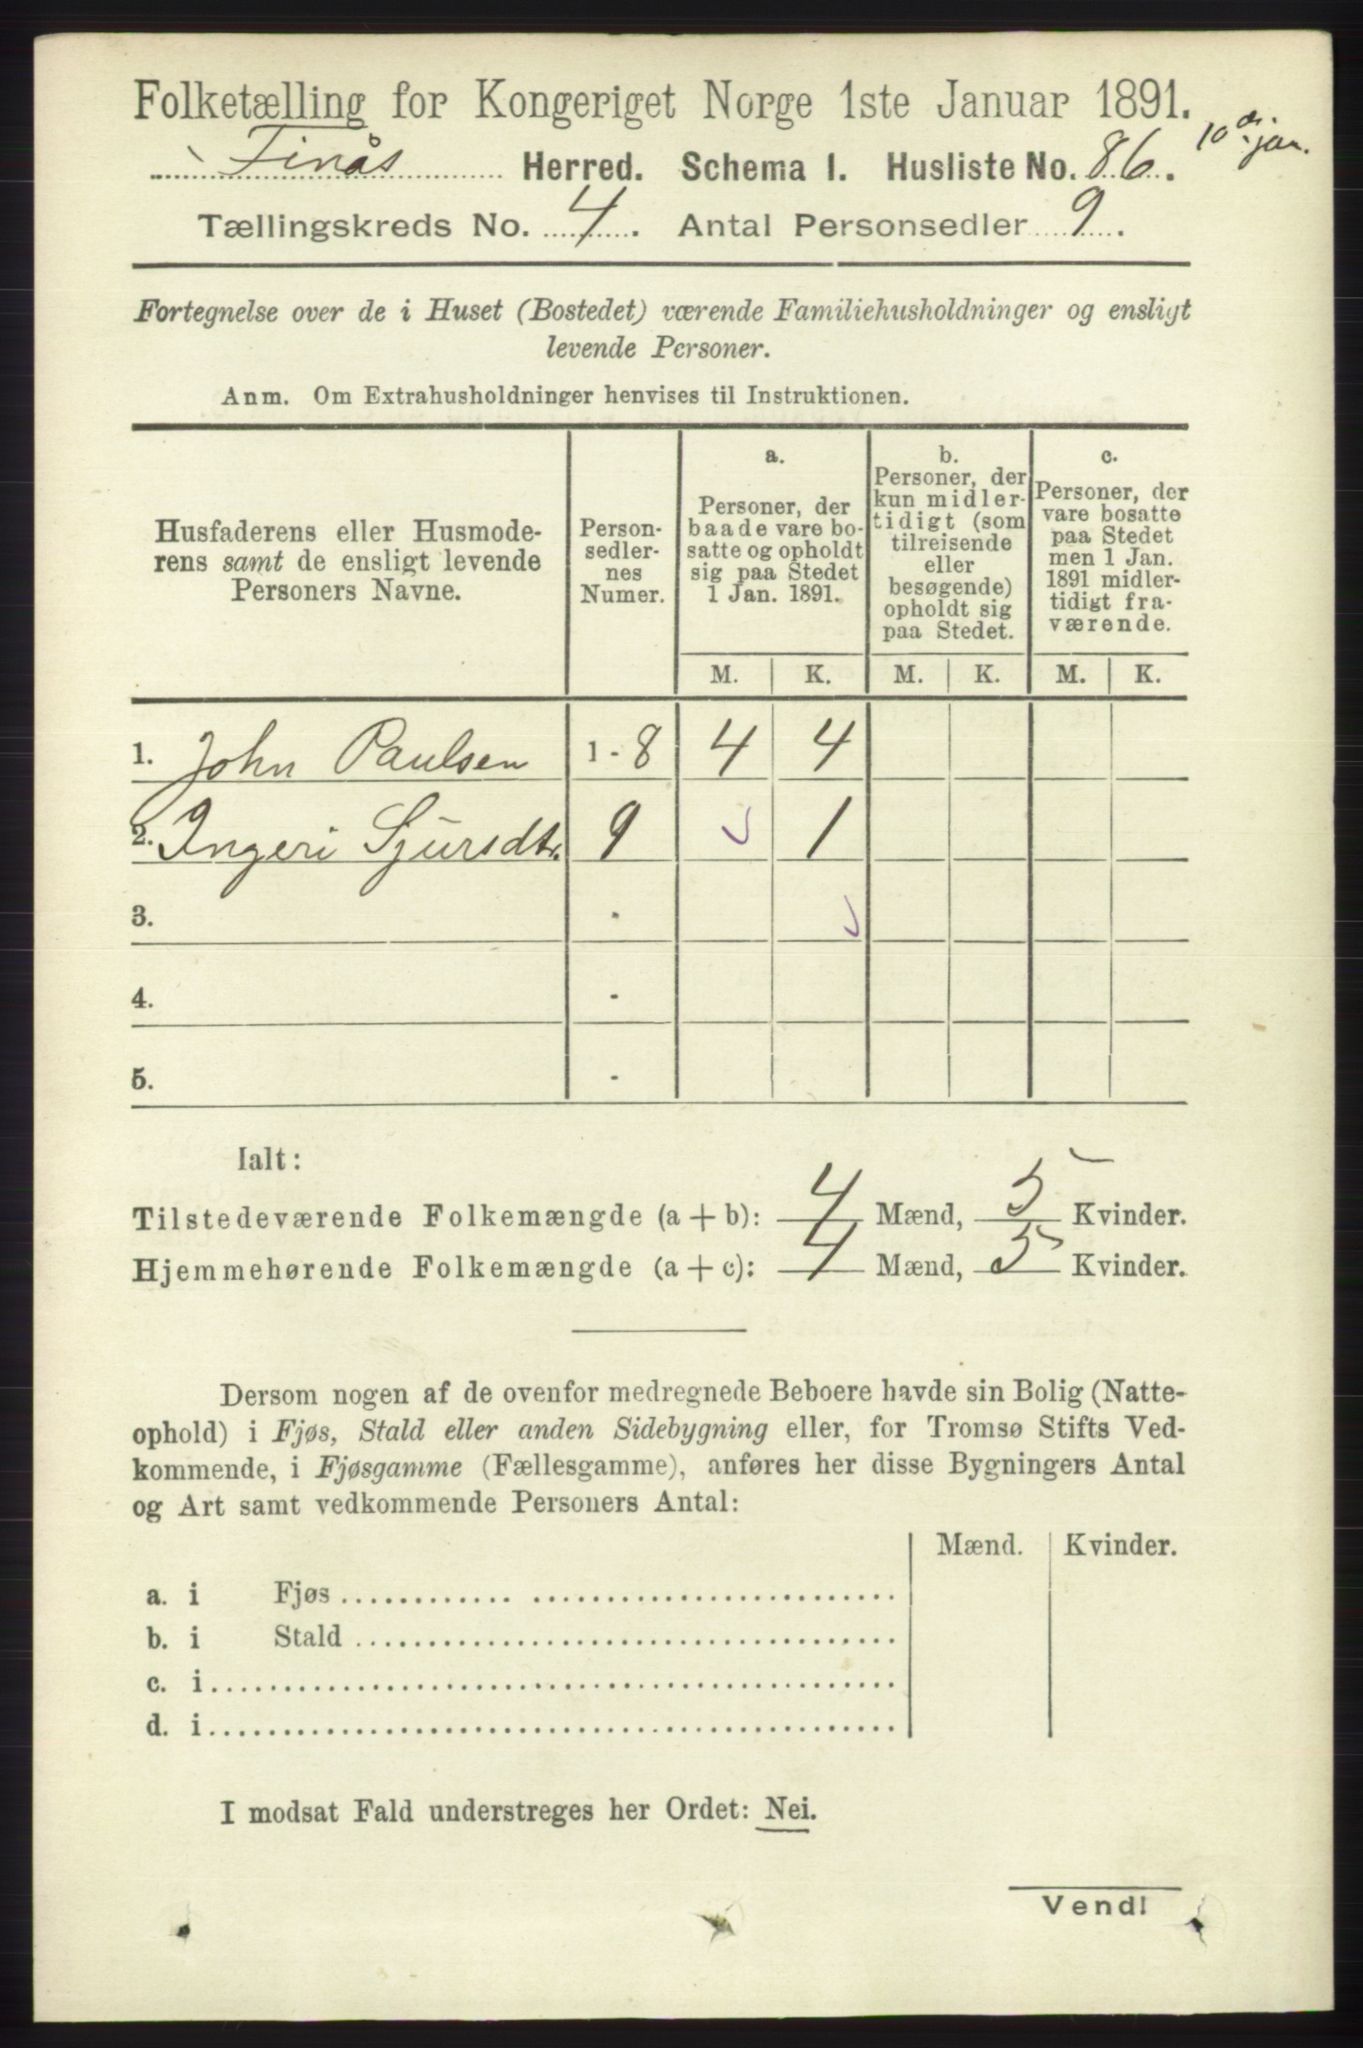 Folketælling for Kongeriget Norge 1ste Januar 1891.
10de jan.
Finås Herred. Schema I. Husliste No. 86.
Tællingskreds No. 4. Antal Personsedler 9.
Fortegnelse over de i Huset (Bostedet) værende Familiehusholdninger og ensligt
levende Personer.
Anm. Om Extrahusholdninger henvises til Instruktionen.
Husfaderens eller Husmode-
rens samt de ensligt levende
Personers Navne.
Person-
sedler-
nes
Numer.
a.
Personer, der
baade vare bo-
satte og opholdt
sig paa Stedet
1 Jan. 1891.
b.
Personer, der
kun midler-
tidigt (som
tilreisende
eller
besøgende)
opholdt sig
paa Stedet.
c.
Personer, der
vare bosatte
paa Stedet
men 1 Jan.
1891 midler-
tidigt fra-
værende.
M. K. M. K. M. K.
1. John Paulsen 1 - 8 4 4
2. Ingeri Sjursdtr. 9 1
3. -
4. -
5. -
Ialt:
Tilstedeværende Folkemængde (a + b): 4 Mænd, 5 Kvinder.
Hjemmehørende Folkemængde (a + c): 4 Mænd, 5 Kvinder.
Dersom nogen af de ovenfor medregnede Beboere havde sin Bolig (Natte-
ophold) i Fjøs, Stald eller anden Sidebygning eller, for Tromsø Stifts Ved-
kommende, i Fjøsgamme (Fællesgamme), anføres her disse Bygningers Antal
og Art samt vedkommende Personers Antal:
Mænd. Kvinder.
a. i Fjøs
b. i Stald
c. i
d. i
I modsat Fald understreges her Ordet: Nei.
Vend!